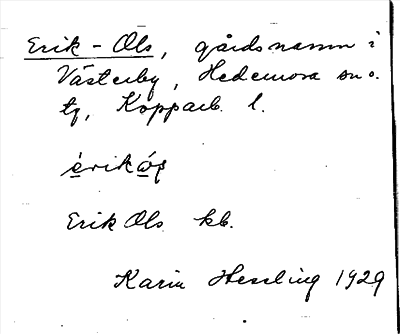 Erik-Ols, gårdsnamn i
Västerby, Hedemora sn o.
tg, Kopparb. l.
Erik Ols kb.
Karin Hessling 1929